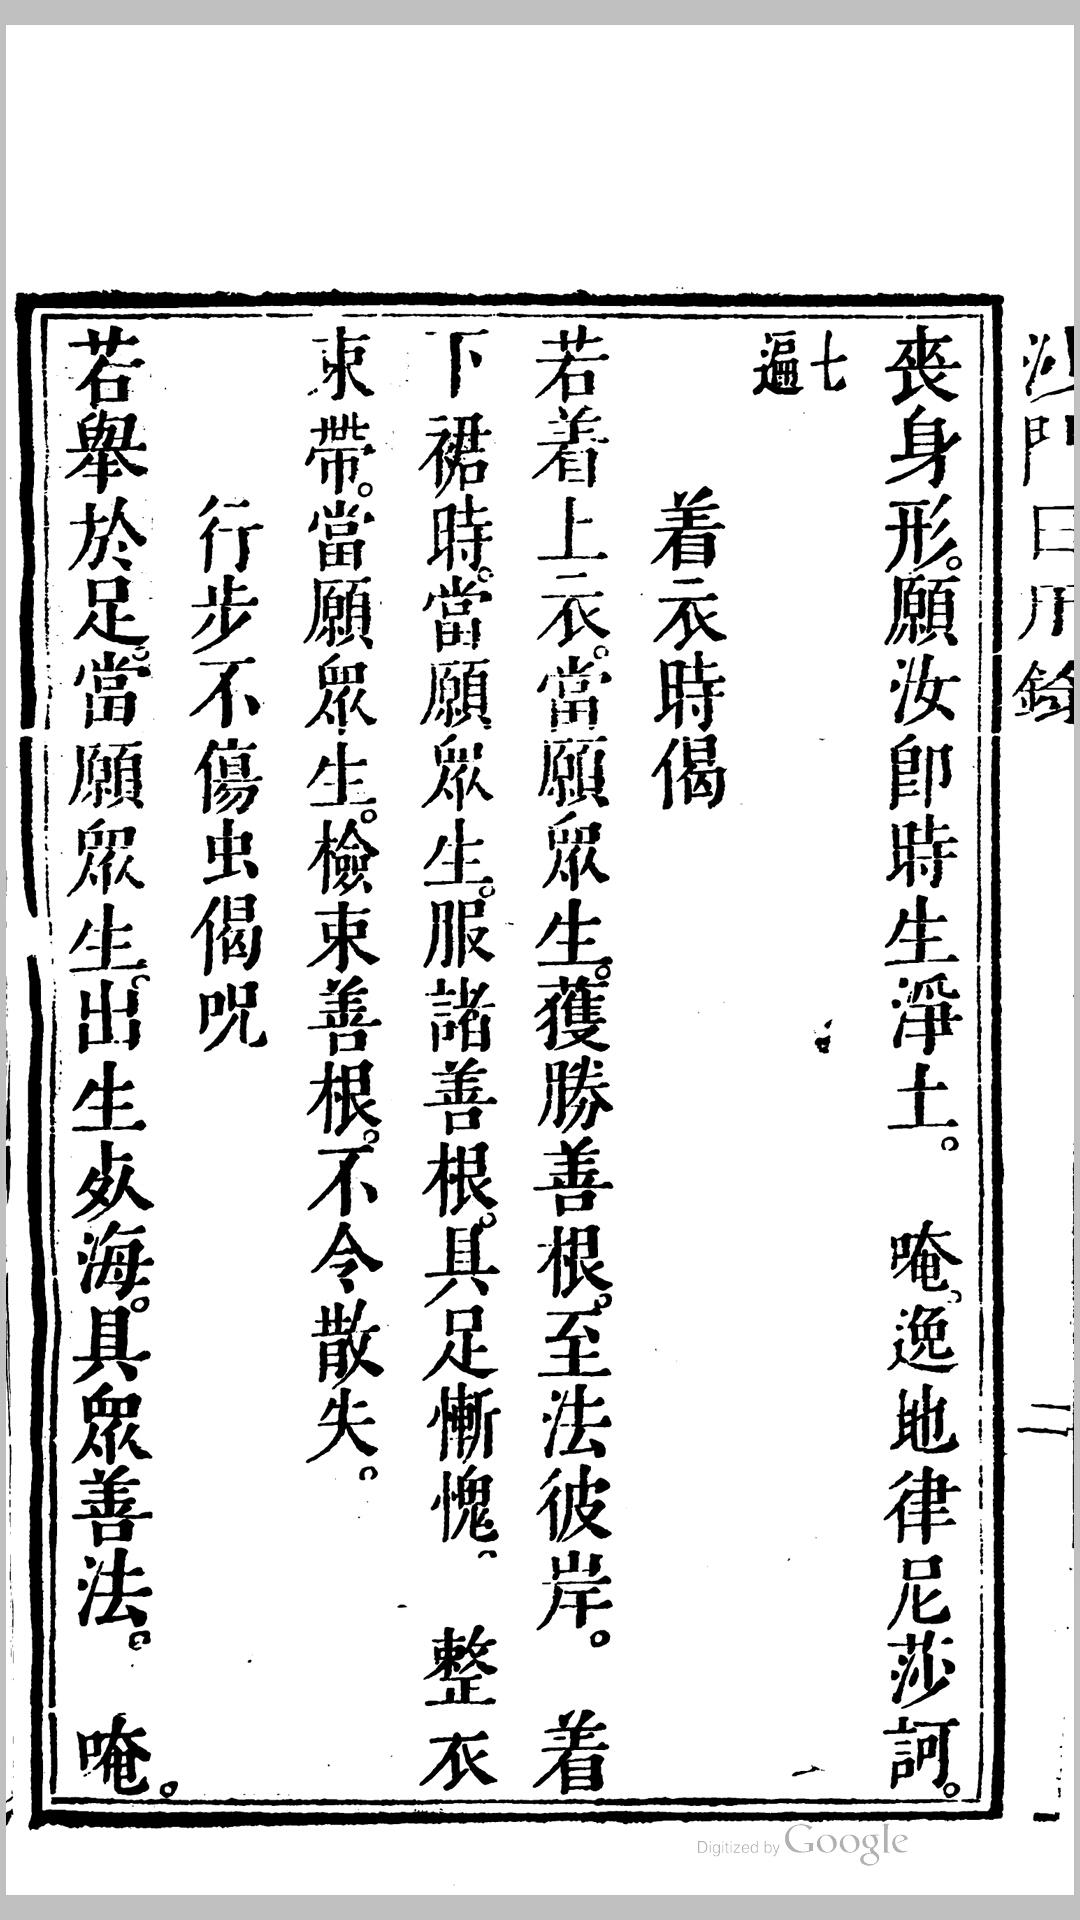 沙門日用錄 二
喪身形。願汝卽時生淨土。 唵。逸地律尼莎訶。
七遍
着衣時偈
若着上衣。當願眾生。獲勝善根。至法彼岸。 着
下裙時。當願眾生。服諸善根。具足慚愧。 整衣
束帶。當願眾生。檢束善根。不令散失。
行步不傷虫偈呪
若舉於足。當願眾生。出生死海。具眾善法。 唵。
Digitized by Google